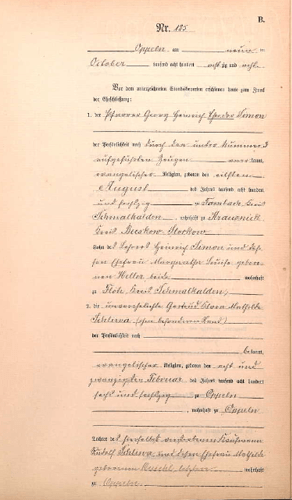 B.
Nr. 185
Oppeln am neun
October tausend acht hundert acht zig und acht
Vor dem unterzeichneten Standesbeamten erschienen heute zum Zwecke
der Eheschließung:
1. der Pfarrer Georg Heinrich Theodor Simon
der Persönlichkeit nach durch den unter Nummer 3
aufgeführten Zeugen kannt,
evangelischer Religion, geboren den elften
August des Jahres tausend acht hundert
und sechzig zu Fambach Kreis
Schmalkalden, wohnhaft zu
Kreis Beeskow Storkow
Sohn des Lehrers Heinrich Simon und des-
sen Ehefrau Margarethe Louise gebore-
nen beide wohnhaft
zu Floh Kreis Schmalkalden;
2. die unverehelichte Gertrud Clara Mathilde
(ohne besonderen Stand)
der Persönlichkeit nach
bekannt,
evangelischer Religion, geboren den acht und
zwanzigsten Februar des Jahres tausend acht hundert
sechs und sechzig zu Oppeln
, wohnhaft zu Oppeln
Tochter des hierselbst verstorbenen Kaufmann
Rudolf und dessen Ehefrau Mathilde
geborenen wohnhaft
zu Oppeln